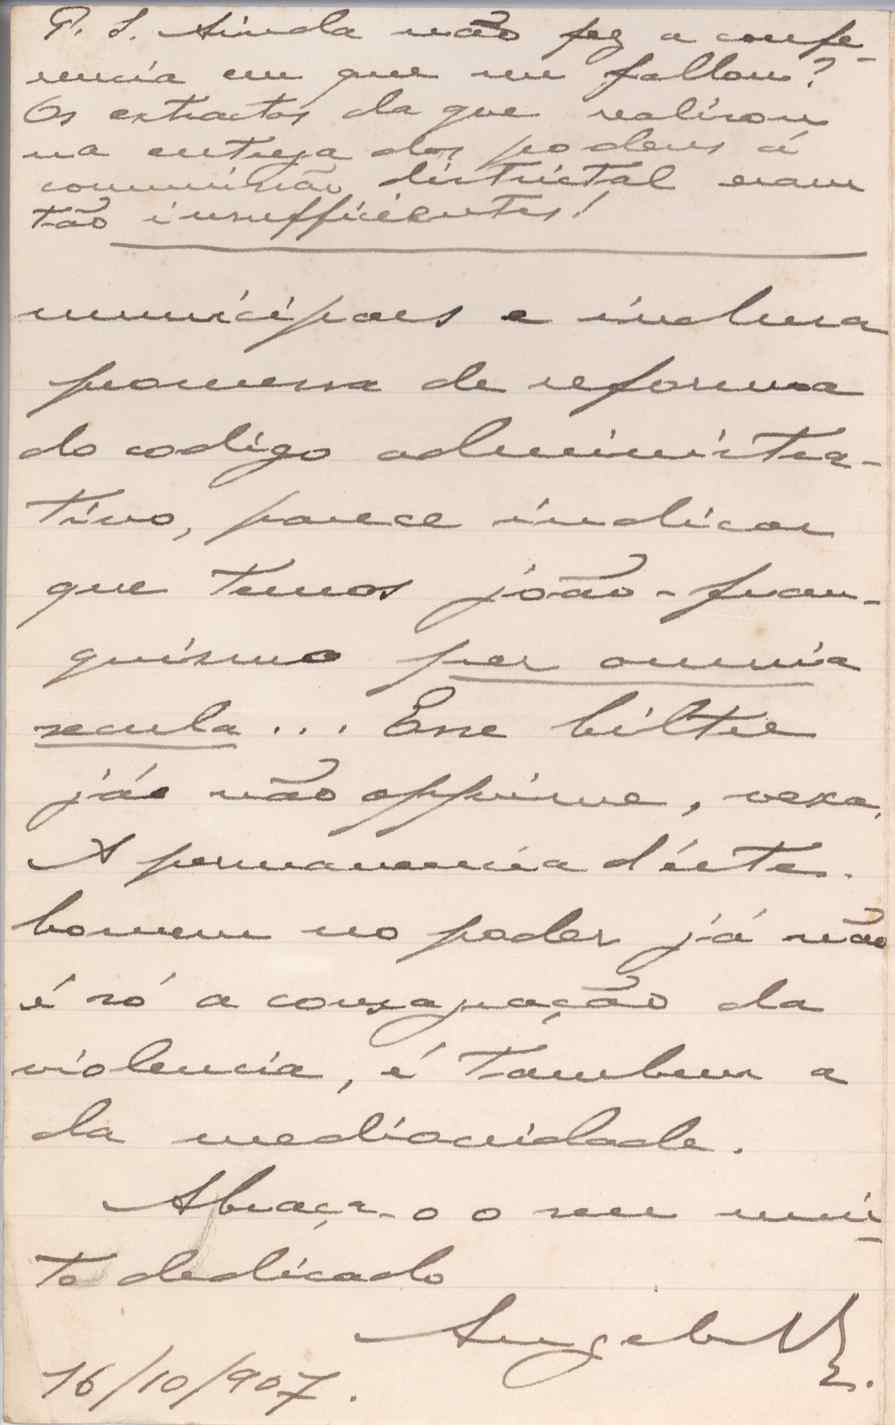 P. S. Ainda não fez a confe-
rencia em que me fallou?
Os extractos da que realisou
na entrega dos poderes á
commissão districtal eram
tão insufficientes!
municipaes e inclusa
promessa de reforma
do codigo administra-
tivo, parece indicar
que temos joão-fran-
quismo per omnia
secula... Esse biltre
já não opprime, vexa.
A permanencia d'éste
homem no poder já não
é só a consagração da
violencia, é tambem a
da mediocridade.
Abraça-o o seu mui-
to dedicado
Angelo
16/10/907.